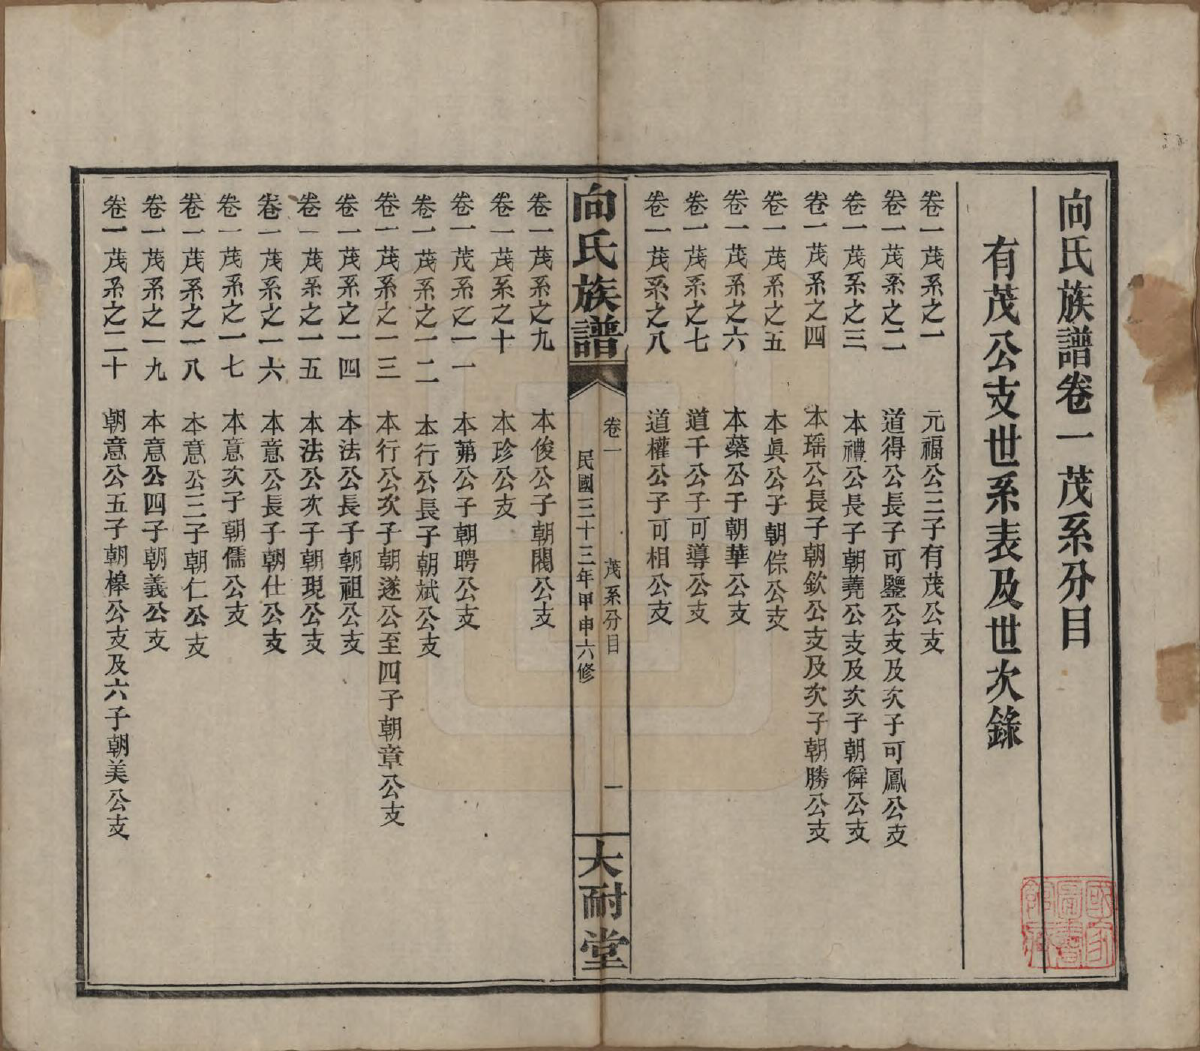 向氏族譜卷一茂系分目
有茂公支世系表及世次錄
卷一茂系之一 元福公三子有茂公支
卷一茂系之二 道得公長子可鑒公支及次子可鳳公支
卷一茂系之三 本禮公長子朝堯公支及次子朝舜公支
卷一茂系之四 本瑶公長子朝欽公支及次子朝勝公支
卷一茂系之五 本眞公子朝倧公支
卷一茂系之六 本榮公子朝華公支
卷一茂系之七 道千公子可導公支
卷一茂系之八 道權公子可相公支
向氏族譜 卷一 茂系分目 一 大耐堂
民國三十三年甲申六修
卷一茂系之九 本俊公子朝閣公支
卷一茂系之十 本珍公支
卷一茂系之一一 本第公子朝聘公支
卷一茂系之一二 本行公長子朝斌公支
卷一茂系之一三 本行公次子朝遂公至四子朝章公支
卷一茂系之一四 本法公長子朝祖公支
卷一茂系之一五 本法公次子朝現公支
卷一茂系之一六 本意公長子朝仕公支
卷一茂系之一七 本意次子朝儒公支
卷一茂系之一八 本意公三子朝仁公支
卷一茂系之一九 本意公四子朝義公支
卷一茂系之二十 朝意公五子朝槔公支及六子朝美公支
國家圖書館藏